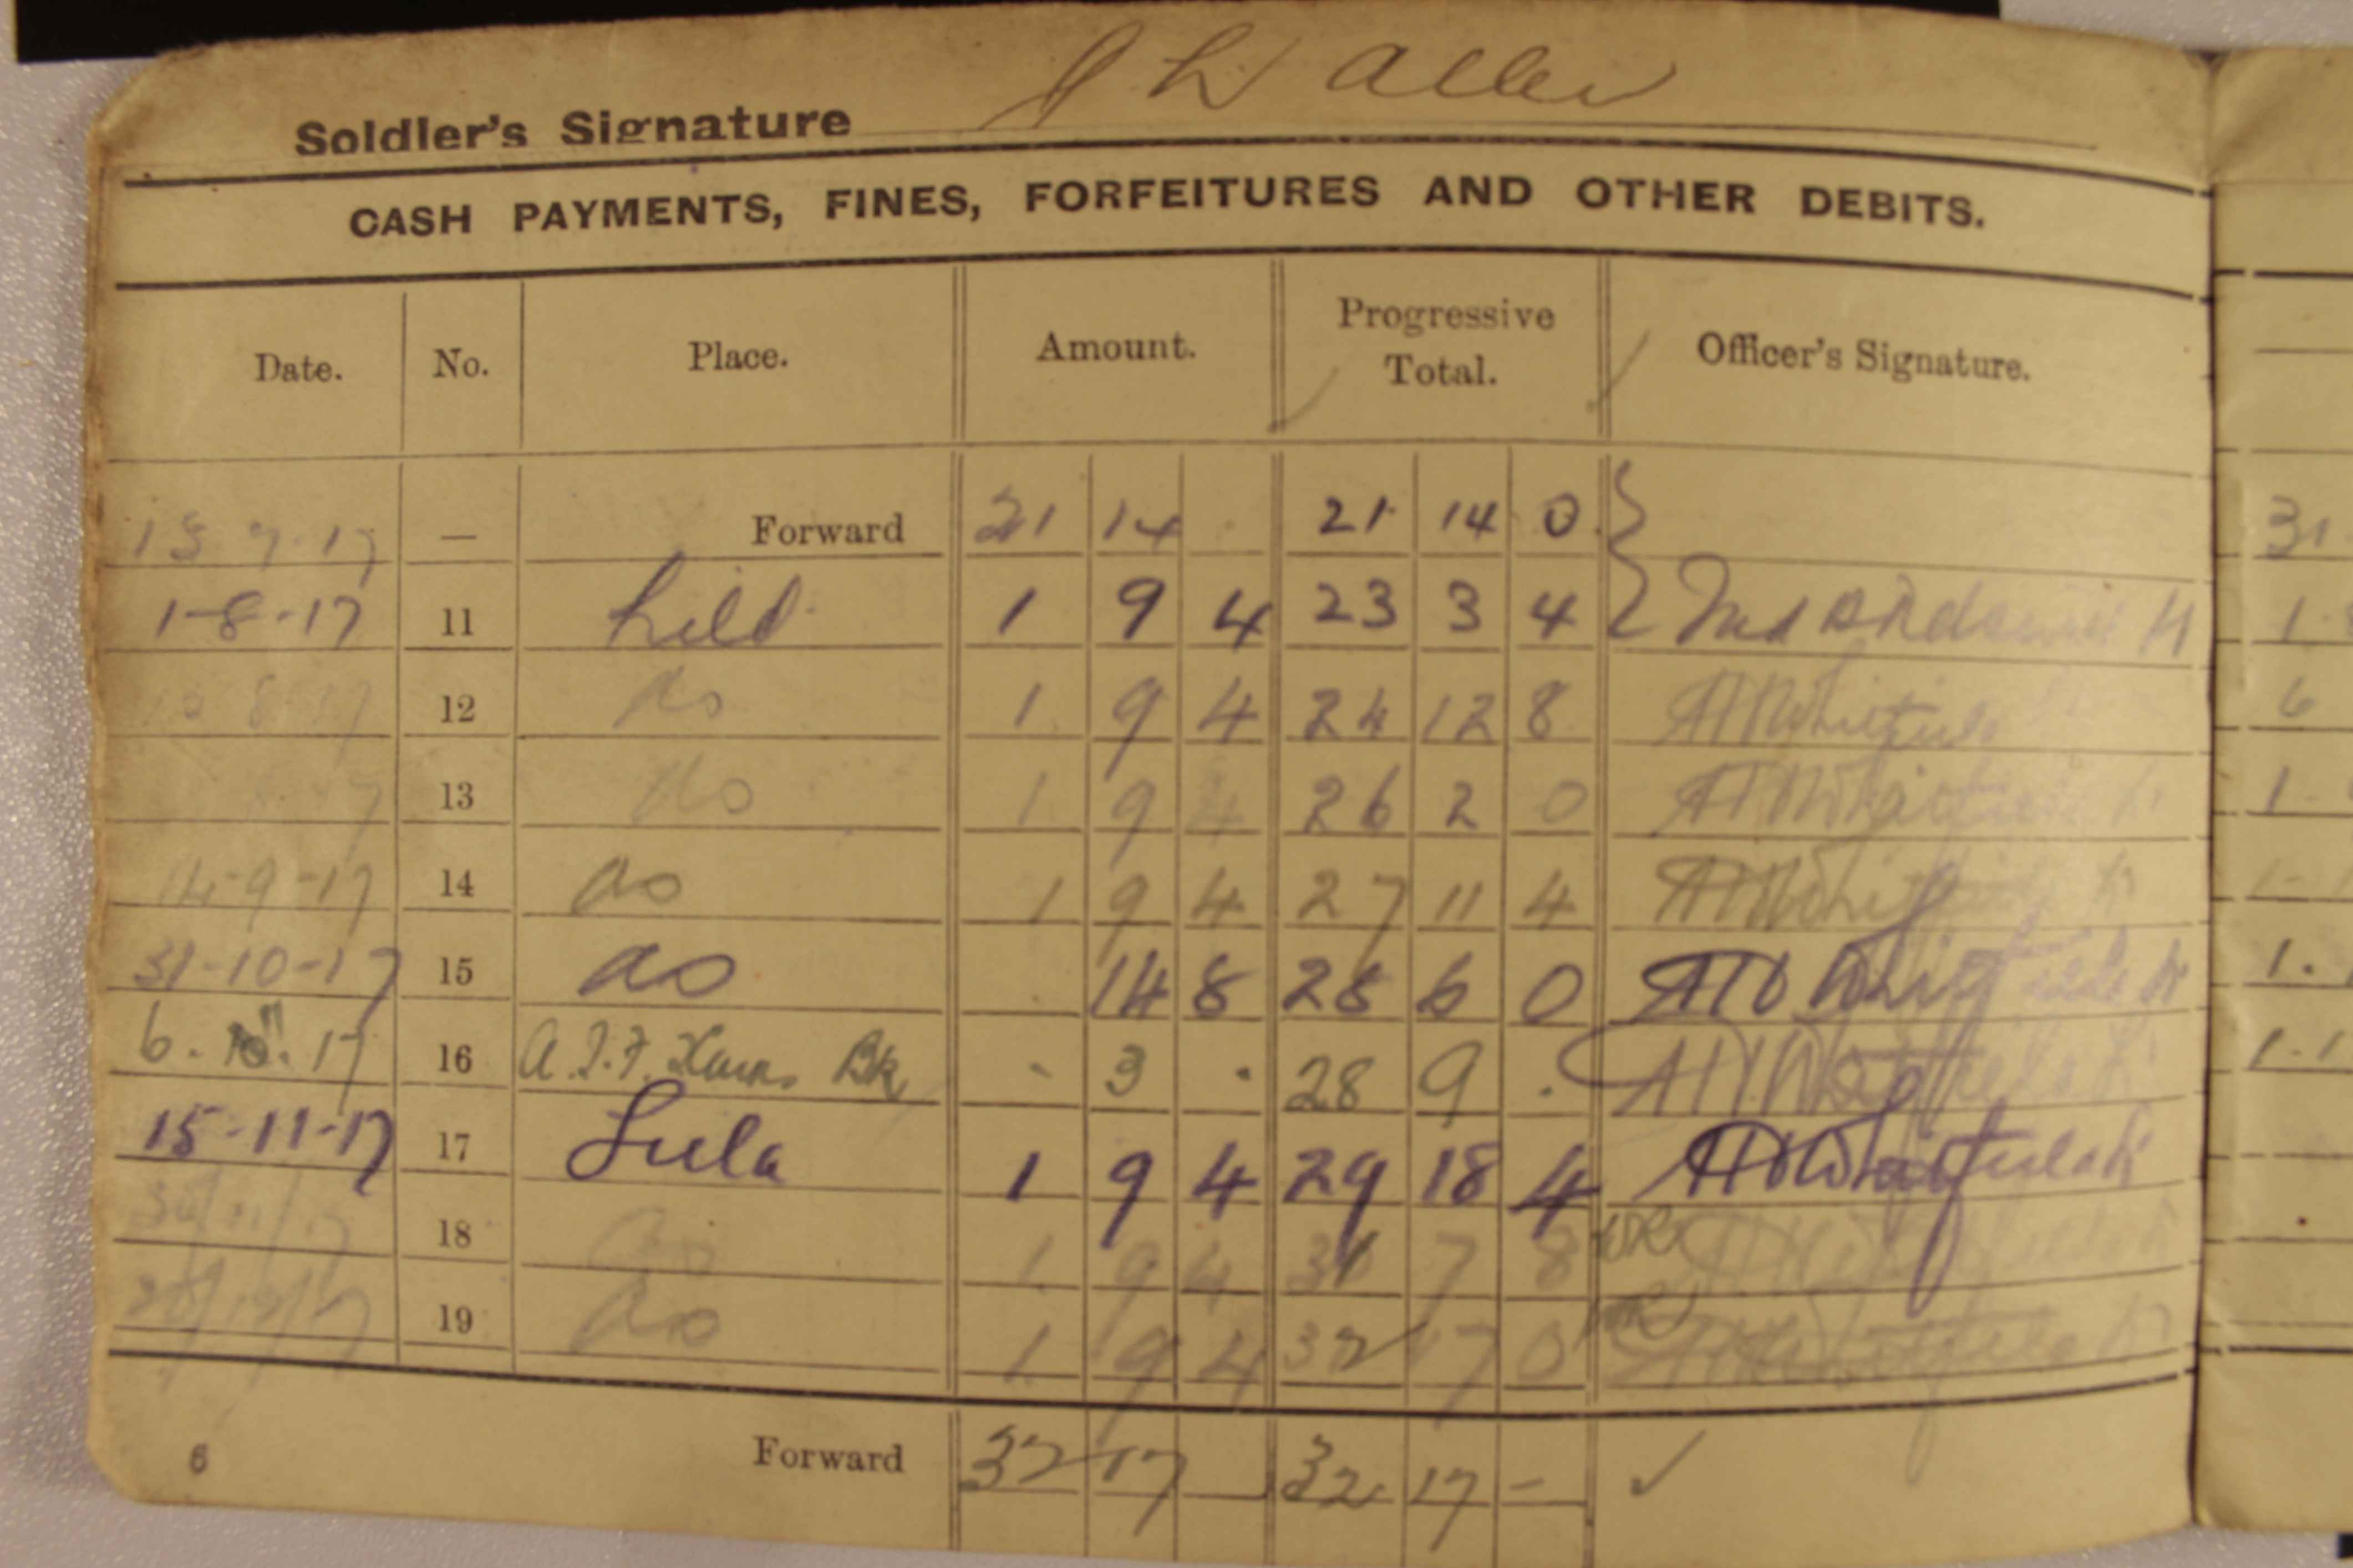 Soldier's Signature Allen
CASH PAYMENTS, FINES, FORFEITURES AND OTHER DEBITS.
Date. No. Place. Amount. Progressive Total. Officer's Signature.
7-17 — Forward 21 14 . 21 14 0
1-8-17 11 1 9 4 23 3 4
8 17 12 do 1 9 4 24 12 8
7 13 do 1 9 4 26 2 0
14-9-17 14 do 1 9 4 27 11 4
31-10-17 15 do 14 8 28 6 0
6. 17 16 A.I.F. Bk - 3 . 28 9 .
15-11-17 17 1 9 4 29 18 4
18 do 1 9 4 31 7 8
19 do 1 9 4 32 17 0
6 Forward 32 17 32 17 -
31
1
6
1
1
1.1
1.1